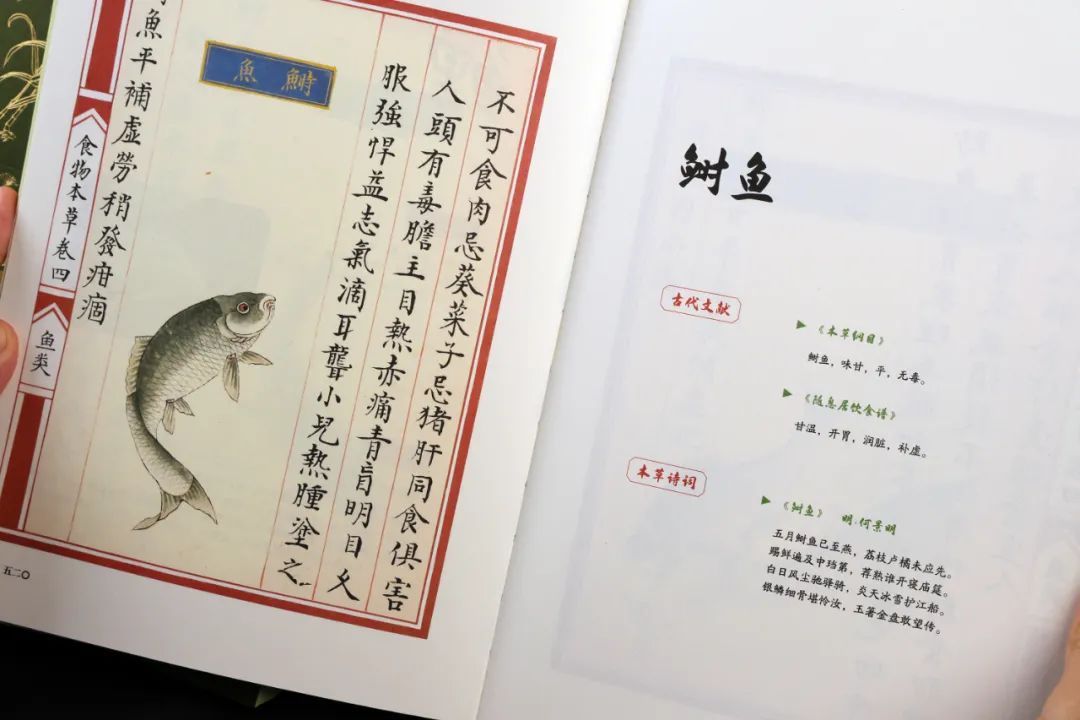 不可食肉忌葵菜子忌猪肝同食俱害
人頭有毒膽主目熱赤痛青盲明目久
服強悍益志氣滴耳聾小兒熱腫塗之
鰣魚
魚平補虛勞稍發疳痼
食物本草卷四
鱼类
五二〇
鲥鱼
古代文献
《本草纲目》
鲥鱼，味甘，平，无毒。
《随息居饮食谱》
甘温，开胃，润脏，补虚。
本草诗词
《鲥鱼》 明·何景明
五月鲥鱼已至燕，荔枝卢橘未应先。
赐鲜遍及中珰第，荐熟谁开寝庙筵。
白日风尘驰驿骑，炎天冰雪护江船。
银鳞细骨堪怜汝，玉箸金盘敢望传。